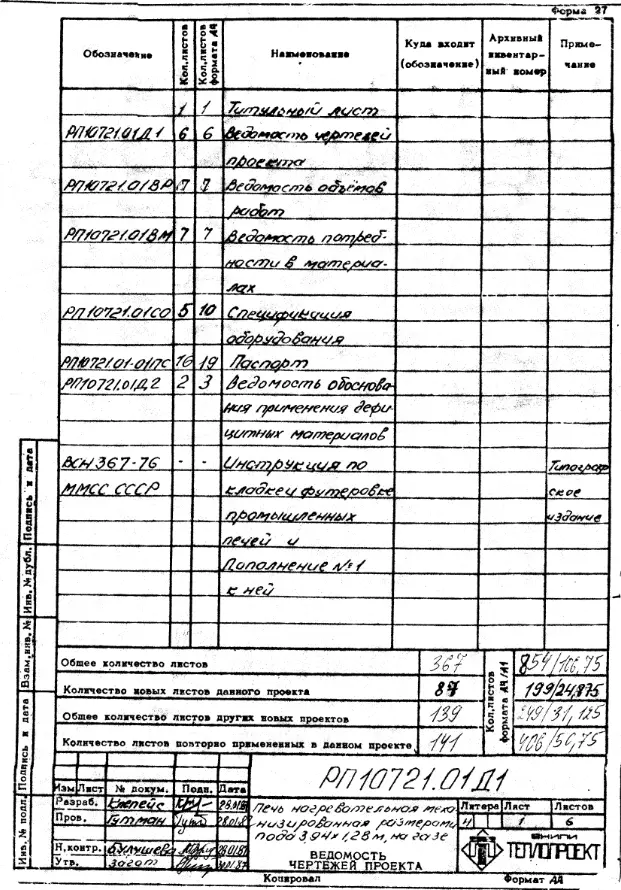 Форма 27
Обозначение Кол.листов Кол.листов формата А4 Наименование Куда входит (обозначение) Архивный инвентарный номер Примечание
1 1 Титульный лист
РП10721.01Д1 6 6 Ведомость чертежей
проекта
РП10721.01ВР 7 7 Ведомость объёмов
работ
РП10721.01ВМ 7 7 Ведомость потреб-
ности в материа-
лах
РП10721.01СО 5 10 Спецификация
оборудования
РП10721.01-01ПС 16 19 Паспорт
РП10721.01Д2 2 3 Ведомость обоснова-
ния применения дефи-
цитных материалов
ВСН 367-76 - - Инструкция по Типограф
ММСС СССР кладке и футеровке ское
промышленных издание
печей и
Дополнение №1
к ней
Общее количество листов 367 Кол.листов формата А4/А1 854/106,75
Количество новых листов данного проекта 87 199/24,875
Общее количество листов других новых проектов 139 249/31,125
Количество листов повторно примененных в данном проекте 141 406/50,75
Инв.№ подл. Подпись и дата Взам.инв.№ Инв.№ дубл. Подпись и дата
РП10721.01Д1
Изм Лист № докум. Подп. Дата
Разраб.
Пров. Гутман
Н.контр.
Утв.
Печь нагревательная меха-
низированная размерами
пода 3,94х1,28м, на газе
ВЕДОМОСТЬ
ЧЕРТЕЖЕЙ ПРОЕКТА
Литера Лист Листов
1 6
ВНИПИ
ТЕПЛОПРОЕКТ
Копировал Формат А4